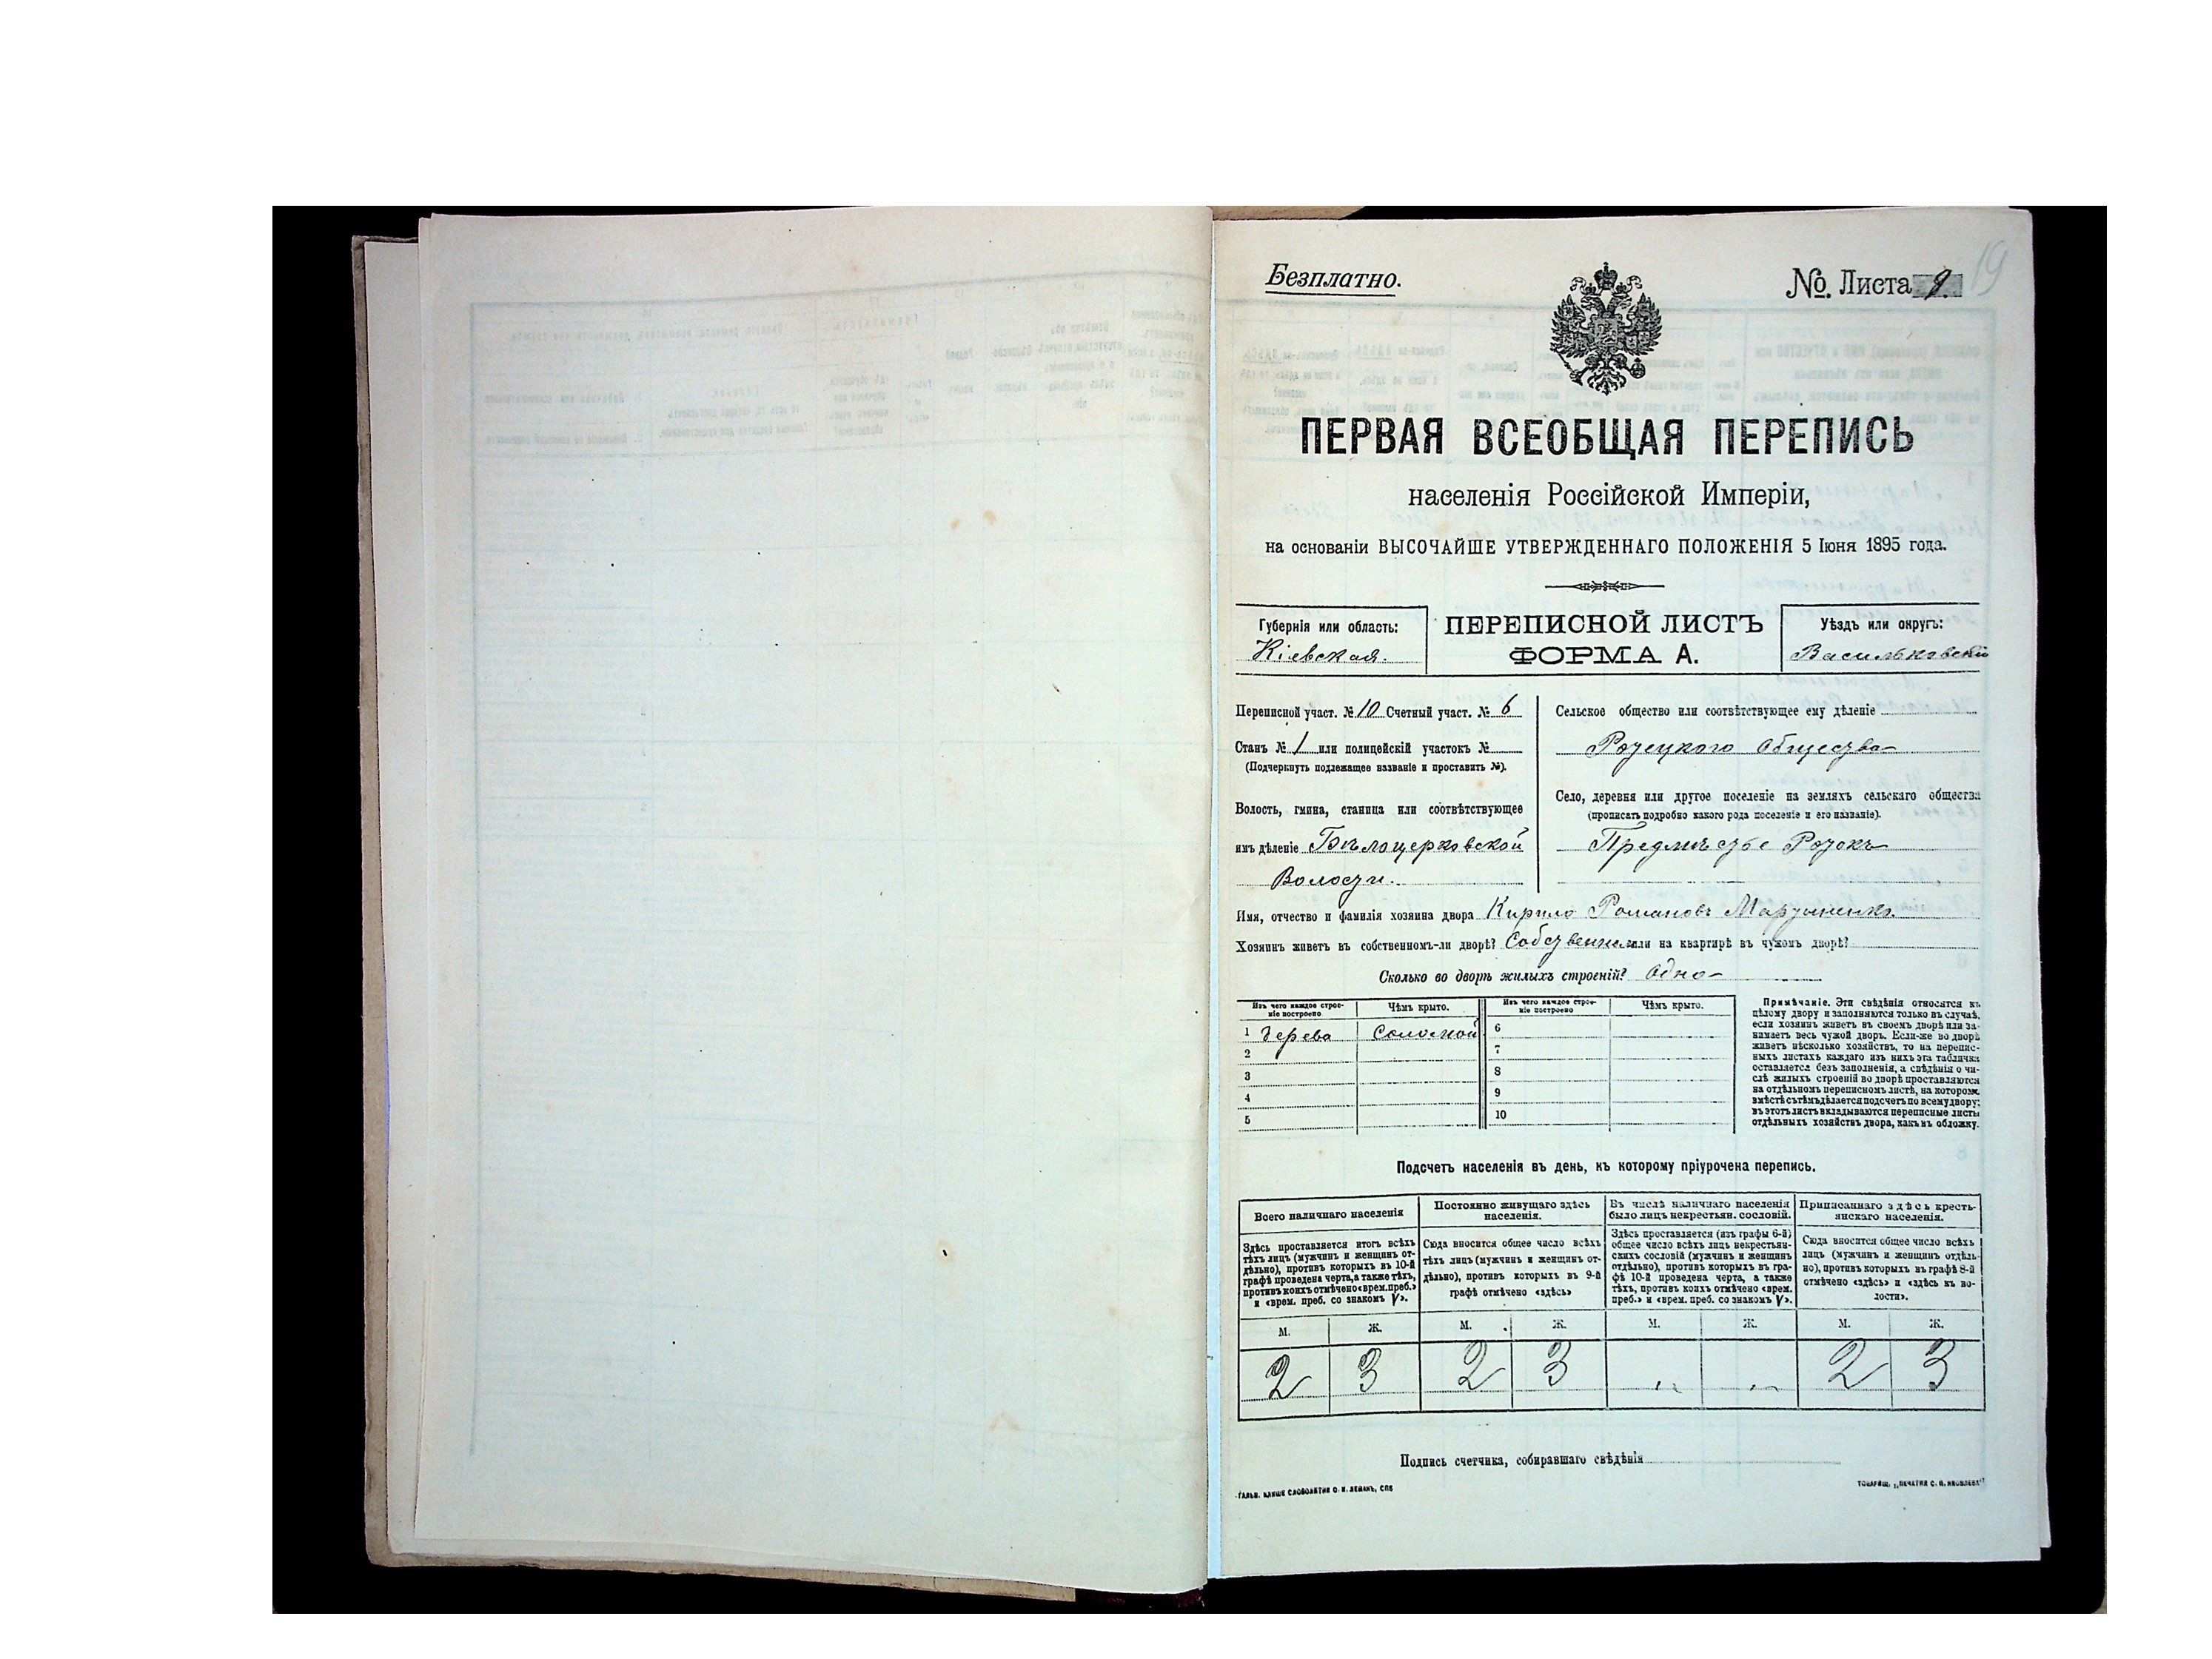 Безплатно.
№. Листа 9.
19
ПЕРВАЯ ВСЕОБЩАЯ ПЕРЕПИСЬ
населенія Россійской Имперіи,
на основаніи ВЫСОЧАЙШЕ УТВЕРЖДЕННАГО ПОЛОЖЕНІЯ 5 Іюня 1895 года.
Губернія или область:
Кіевская.
ПЕРЕПИСНОЙ ЛИСТЪ
ФОРМА А.
Уѣздъ или округъ:
Васильковскій
Переписной участ. № 10 Счетный участ. № 6
Станъ № 1 или полицейскій участокъ №
(Подчеркнуть подлежащее названіе и проставить №).
Волость, гмина, станица или соотвѣтствующее
имъ дѣленіе Бѣлоцерковской
Волости.
Сельское общество или соотвѣтствующее ему дѣленіе
Ротецкого Общества
Село, деревня или другое поселеніе на земляхъ сельскаго общества
(прописать подробно какого рода поселеніе и его названіе).
Предмѣстье Ротокъ
Имя, отчество и фамилія хозяина двора Кирило Романовъ Мартыненко.
Хозяинъ живетъ въ собственномъ-ли дворѣ? Собственном или на квартирѣ въ чужомъ дворѣ?
Сколько во дворѣ жилыхъ строеній? Одно
Изъ чего каждое строе-
ніе построено
Чѣмъ крыто.
Изъ чего каждое строе-
ніе построено
Чѣмъ крыто.
1 дерева Соломой
2
3
4
5
6
7
8
9
10
Примѣчаніе. Эти свѣдѣнія относятся къ
цѣлому двору и заполняются только въ случаѣ,
если хозяинъ живетъ въ своемъ дворѣ или за-
нимаетъ весь чужой дворъ. Если-же во дворѣ
живетъ нѣсколько хозяйствъ, то на перепис-
ныхъ листахъ каждаго изъ нихъ эта табличка
оставляется безъ заполненія, а свѣдѣнія о чи-
слѣ жилыхъ строеній во дворѣ проставляются
на отдѣльномъ переписномъ листѣ, на которомъ
вмѣстѣ съ тѣмъ дѣлается подсчетъ по всему двору;
въ этотъ листъ вкладываются переписные листы
отдѣльныхъ хозяйствъ двора, какъ въ обложку.
Подсчетъ населенія въ день, къ которому пріурочена перепись.
Всего наличнаго населенія
Постоянно живущаго здѣсь
населенія.
Въ числѣ наличнаго населенія
было лицъ некрестьян. сословій.
Приписаннаго здѣсь кресть-
янскаго населенія.
Здѣсь проставляется итогъ всѣхъ
тѣхъ лицъ (мужчинъ и женщинъ от-
дѣльно), противъ которыхъ въ 10-й
графѣ проведена черта, а также тѣхъ,
противъ коихъ отмѣчено «врем. преб.»
и «врем. преб. со знакомъ V».
Сюда вносится общее число всѣхъ
тѣхъ лицъ (мужчинъ и женщинъ от-
дѣльно), противъ которыхъ въ 9-й
графѣ отмѣчено «здѣсь»
Здѣсь проставляется (изъ графы 6-й)
общее число всѣхъ лицъ некрестьян-
скихъ сословій (мужчинъ и женщинъ
отдѣльно), противъ которыхъ въ гра-
фѣ 10-й проведена черта, а также
тѣхъ, противъ коихъ отмѣчено «врем.
преб.» и «врем. преб. со знакомъ V».
Сюда вносится общее число всѣхъ
лицъ (мужчинъ и женщинъ отдѣль-
но), противъ которыхъ въ графѣ 8-й
отмѣчено «здѣсь» и «здѣсь къ во-
лости».
М. Ж. М. Ж. М. Ж. М. Ж.
2 3 2 3 „ „ 2 3
Подпись счетчика, собиравшаго свѣдѣнія
ГАЛЬВ. КЛИШЕ СЛОВОЛИТНИ О. И. ЛЕМАНЪ, СПБ
ТОВАРИЩ. „ПЕЧАТНЯ С. П. ЯКОВЛЕВА“